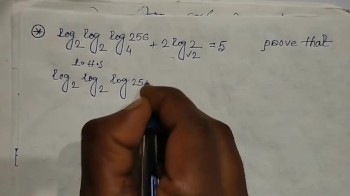 * log₂ log₂ log₄ 256 + 2 log√2 2 = 5 prove that
L.H.S
log₂ log₂ log 25